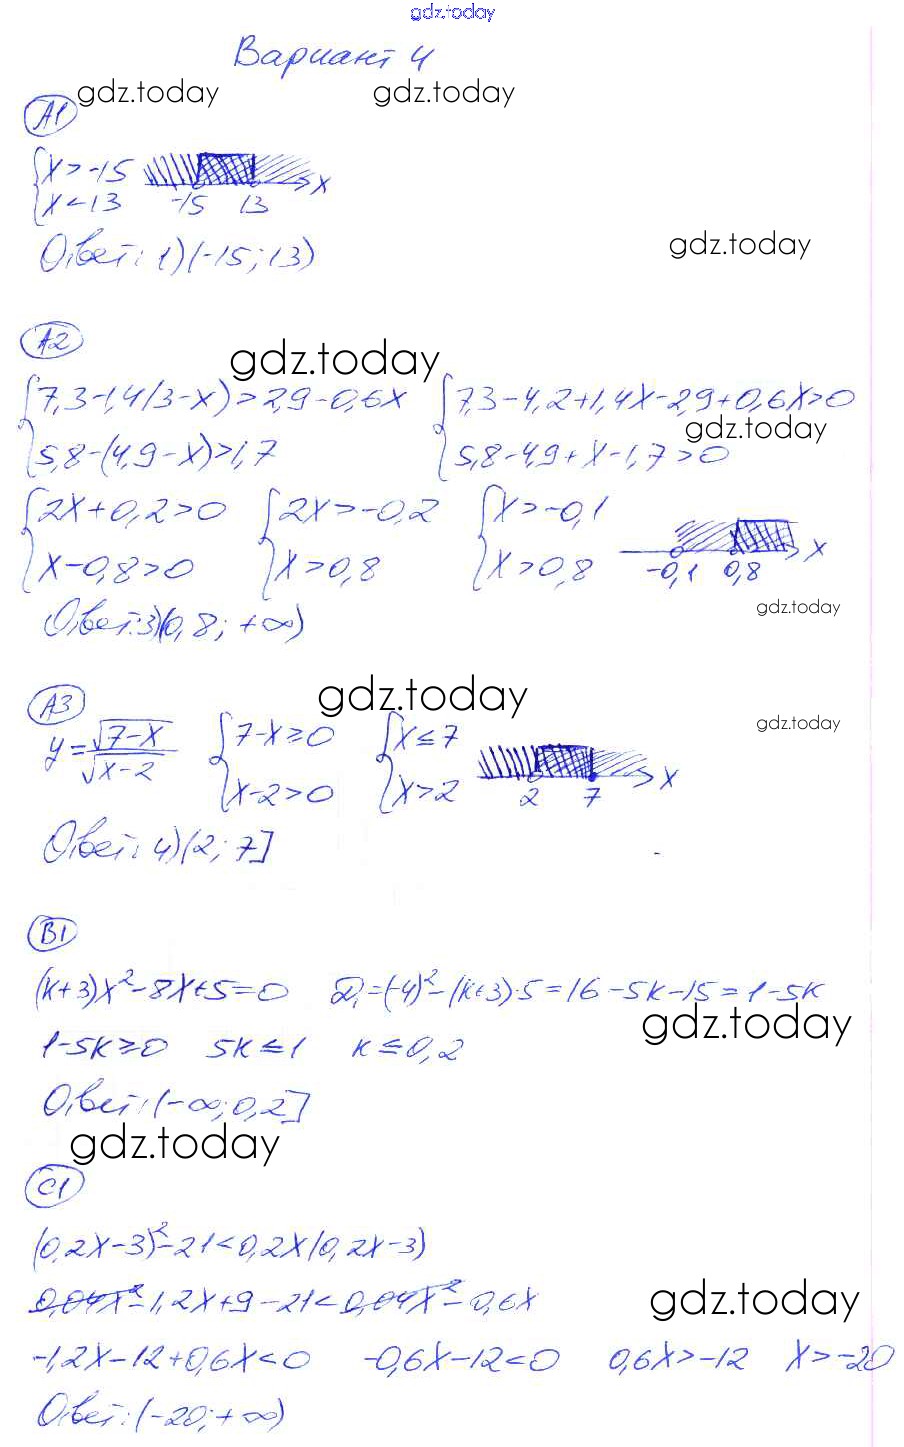 gdz.today
Вариант 4
gdz.today gdz.today
A1
{x>-15
{x<13
-15 13 x
Ответ: 1) (-15; 13)
gdz.today
A2
gdz.today
{7,3-1,4(3-x)>2,9-0,6x {7,3-4,2+1,4x-2,9+0,6x>0
gdz.today
{5,8-(4,9-x)>1,7 {5,8-4,9+x-1,7>0
{2x+0,2>0 {2x>-0,2 {x>-0,1
{x-0,8>0 {x>0,8 {x>0,8
-0,1 0,8 x
gdz.today
Ответ: 3) (0,8; +∞)
gdz.today
A3
gdz.today
y=√(7-x)/√(x-2) {7-x≥0 {x≤7
{x-2>0 {x>2
2 7 x
Ответ: 4) (2; 7]
B1
(k+3)x²-8x+5=0 D₁=(-4)²-(k+3)·5=16-5k-15=1-5k
gdz.today
1-5k≥0 5k≤1 k≤0,2
Ответ: (-∞; 0,2]
gdz.today
C1
(0,2x-3)²-21<0,2x(0,2x-3)
0,04x²-1,2x+9-21<0,04x²-0,6x
gdz.today
-1,2x-12+0,6x<0 -0,6x-12<0 0,6x>-12 x>-20
Ответ: (-20; +∞)